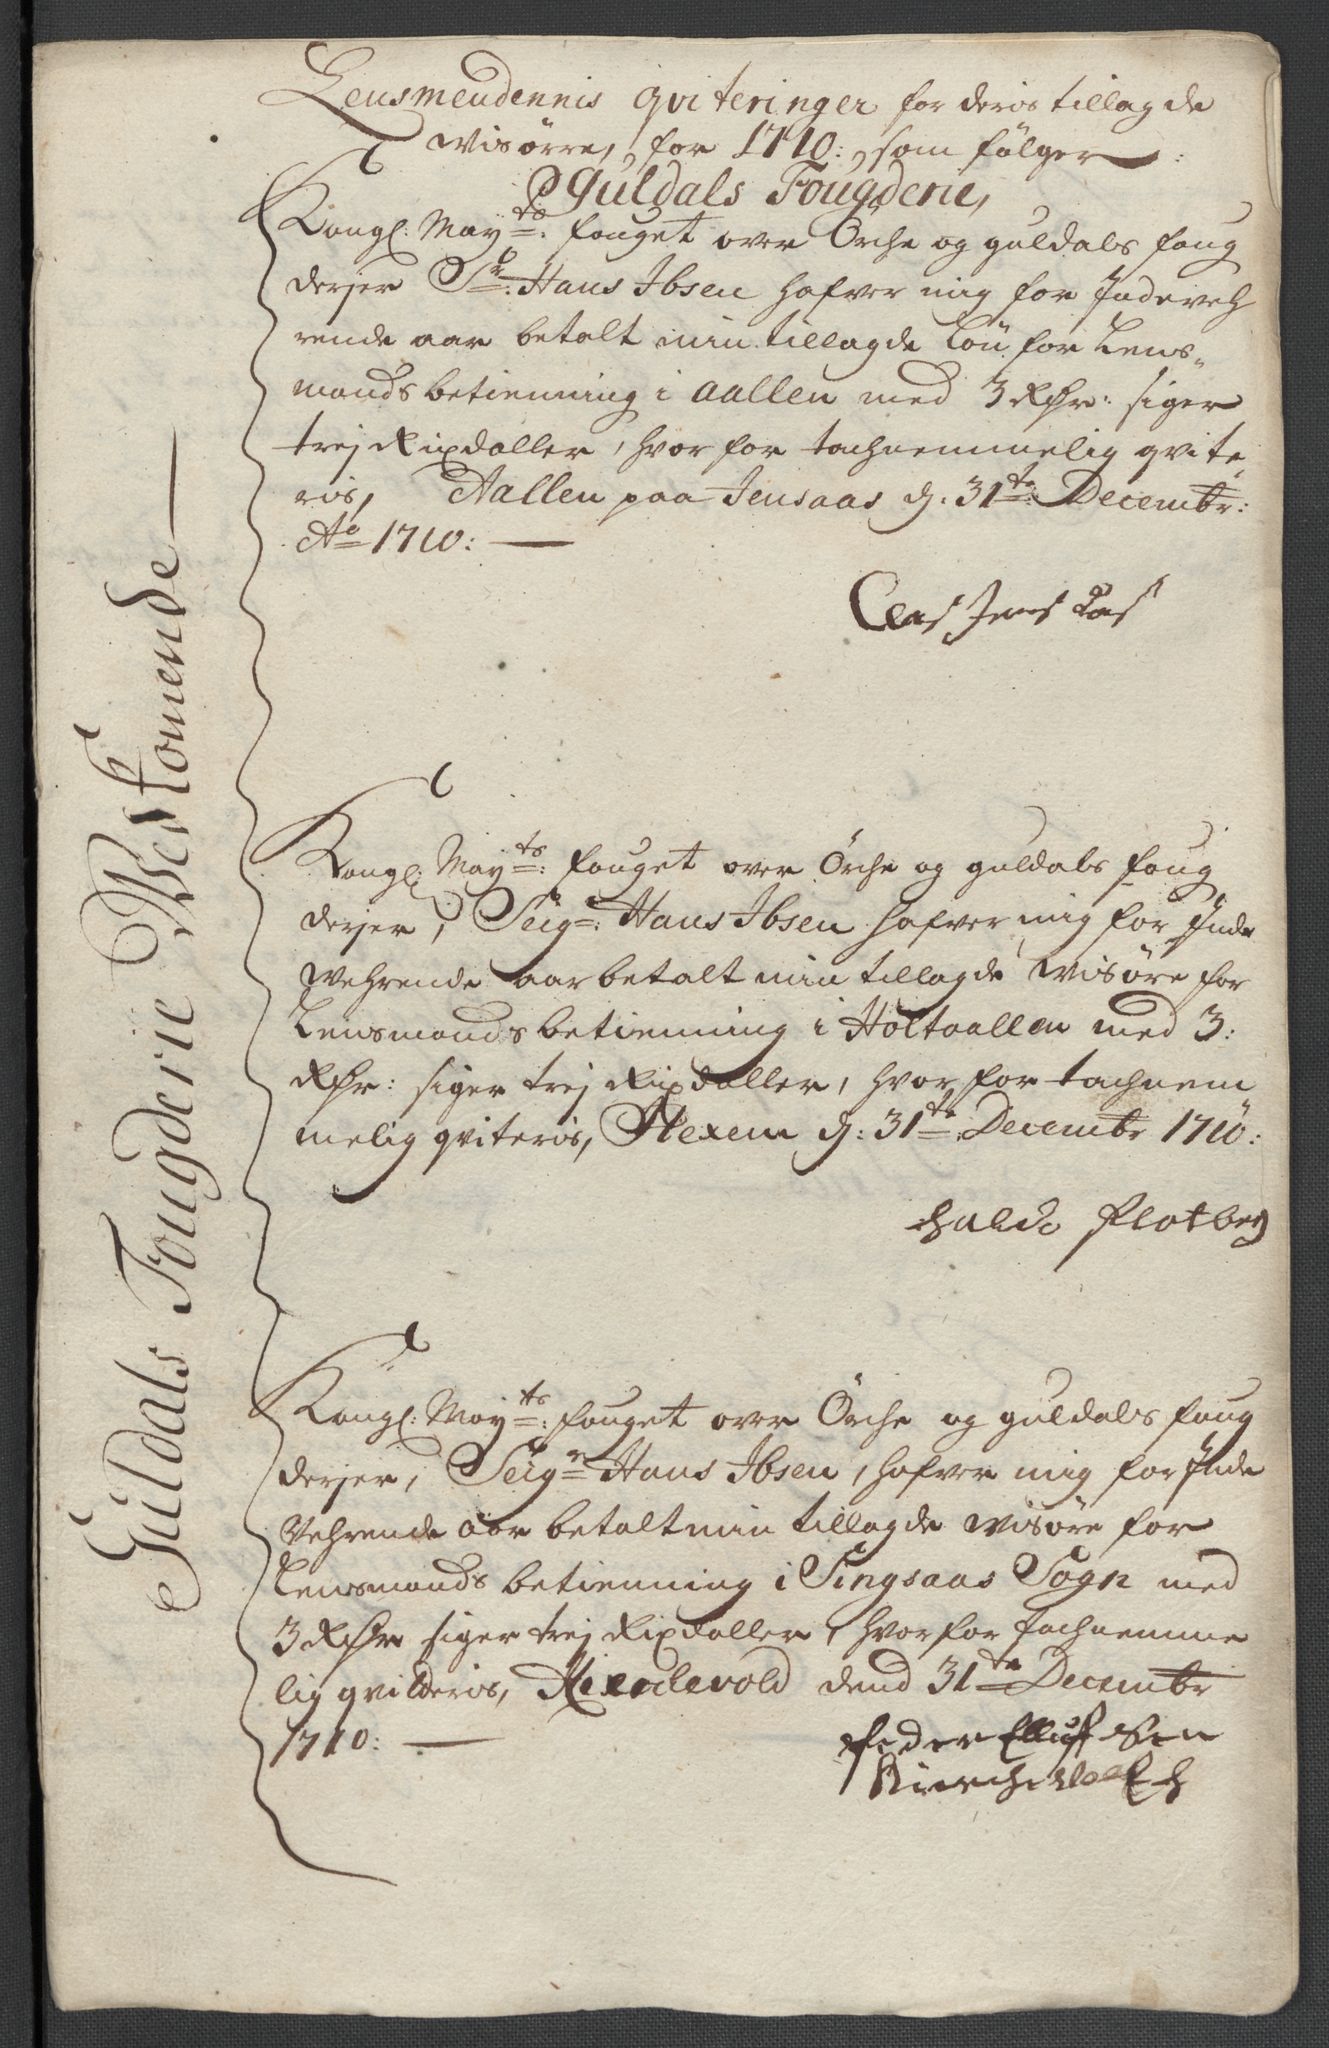 Lensmendennis qviteringer for deris tillagde
Wisørre, for 1710: som fölger
Guldals Fougderie,
Kongl: May.ts fouget over Örche og guldals foug
derjer Sr: Hans Ibsen hafver mig for Indeveh
rende aar betalt min tillagde Lön for Lens-
mands betienning i Aallen med 3 Rdr: siger
trej Rixdaller, hvor for tachnemmelig qvite-
ris, Aallen paa Jensaas d: 31te Decembr:
Ao 1710:
Guldals Fougderie Wedkomende
Kongl: May.ts: fouget over Örche og guldals foug
derjer, Seigr: Hans Ibsen hafver mig for Inde
Wehrende aar betalt min tillagde Wisøre for
Lensmands betienning i Holtaallen med 3:
Rdr: siger trej Rixdaller, hvor for tachnem
melig qviteris, Hexem d: 31te Decembr 1710:
Haldo Flatberg
Kongl: May.ts: fouget over Örche og guldals foug
derjer, Seigr Hans Ibsen, hafver mig for Inde
Vehrende aar betalt min tillagde Wisøre for
Lensmands betienning i Singsaas Sogn med
3 Rdr siger trej Rixdaller, hvorfor tachnemme
lig qvilderis, Kierchevold dend 31te Decembr
1710:
Peder Elluf Sen